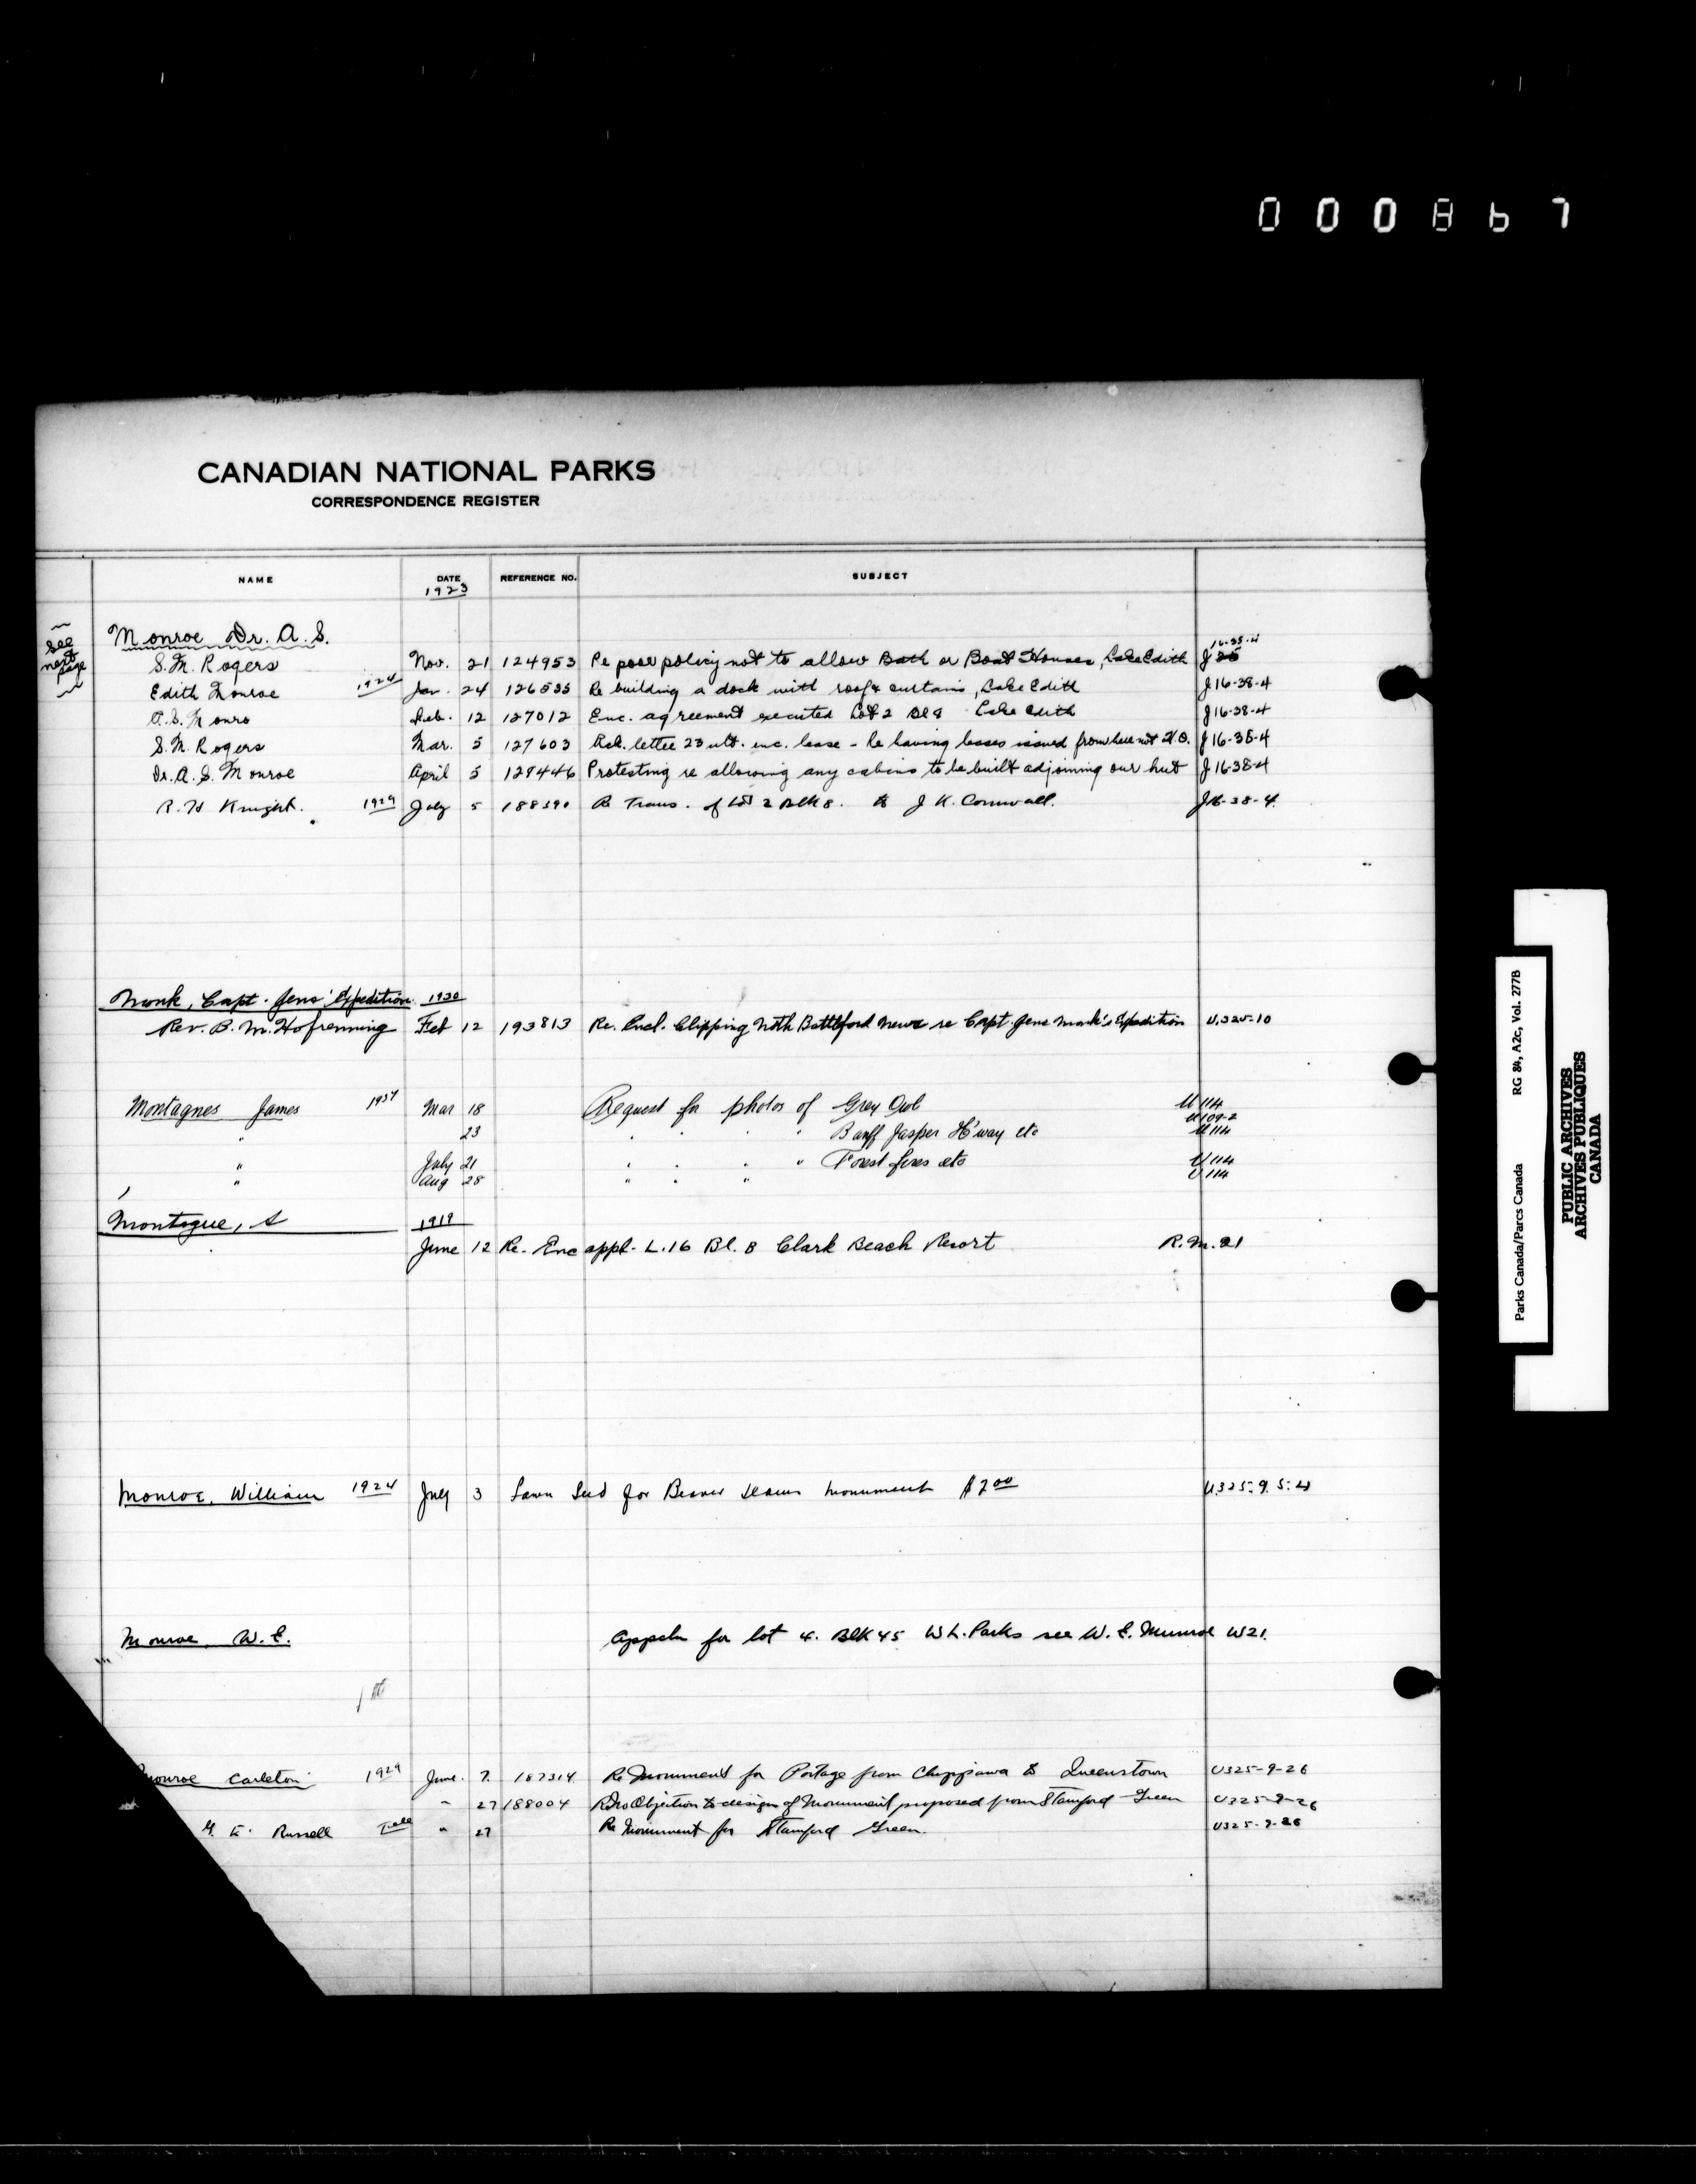 000867
CANADIAN NATIONAL PARKS
CORRESPONDENCE REGISTER
NAME DATE REFERENCE NO. SUBJECT
1923
See next page
Monroe Dr. A. S.
16-35-4
S. M. Rogers Nov. 21 124953 Re policy not to allow Bath or Boat Houses, Lake Edith J
Edith Monroe 1924 Jan. 24 126535 Re building a dock with roof & curtains, Lake Edith J 16-38-4
A. S. Monro Feb. 12 127012 Enc. agreement executed Lot 2 Bl 8 Lake Edith J 16-38-4
S. M. Rogers Mar. 5 127603 Ack. letter 23 ult. enc. lease - Re having leases issued from here not H.O. J 16-35-4
Dr. A. S. Monroe April 5 129446 Protesting re allowing any cabins to be built adjoining our hut J 16-38-4
R. H Knight. 1929 July 5 188390 Re Trans. of Lot 2 Blk 8. to J K. Cornwall. J16-38-4
Monk, Capt. Jens' Expedition 1930
Rev. B. M. Hofrenning Feb 12 193813 Re. Encl. Clipping North Battleford News re Capt. Jens Monk's Expedition U.325-10
Montagnes James 1937 Mar 18 Request for photos of Grey Owl U 114
U 109-2
" 23 " " " " Banff Jasper H'way etc U 114
" July 21 " " " " Forest fires etc U 114
" Aug 28 " " " U 114
Montague, A 1919
June 12 Re. Enc appl- L.16 Bl. 8 Clark Beach Resort R.M.21
Monroe, William 1924 July 3 Lawn Seed for Beaver Dams Monument $2.00 U325-9.5-4
Monroe W. E. Appcln for lot 4. Blk 45 W L. Parks see W. E. Munroe W21.
Monroe Carleton 1929 June 7. 187314 Re Monument for Portage from Chippawa to Queenstown U325-9-26
" 27 188004 Re No Objection to design of Monument proposed from Stamford Green U325-9-26
G. E. Russell " 27 Re Monument for Stamford Green. U325-9-26
Parks Canada/Parcs Canada RG 84, A2c, Vol. 277B
PUBLIC ARCHIVES
ARCHIVES PUBLIQUES
CANADA